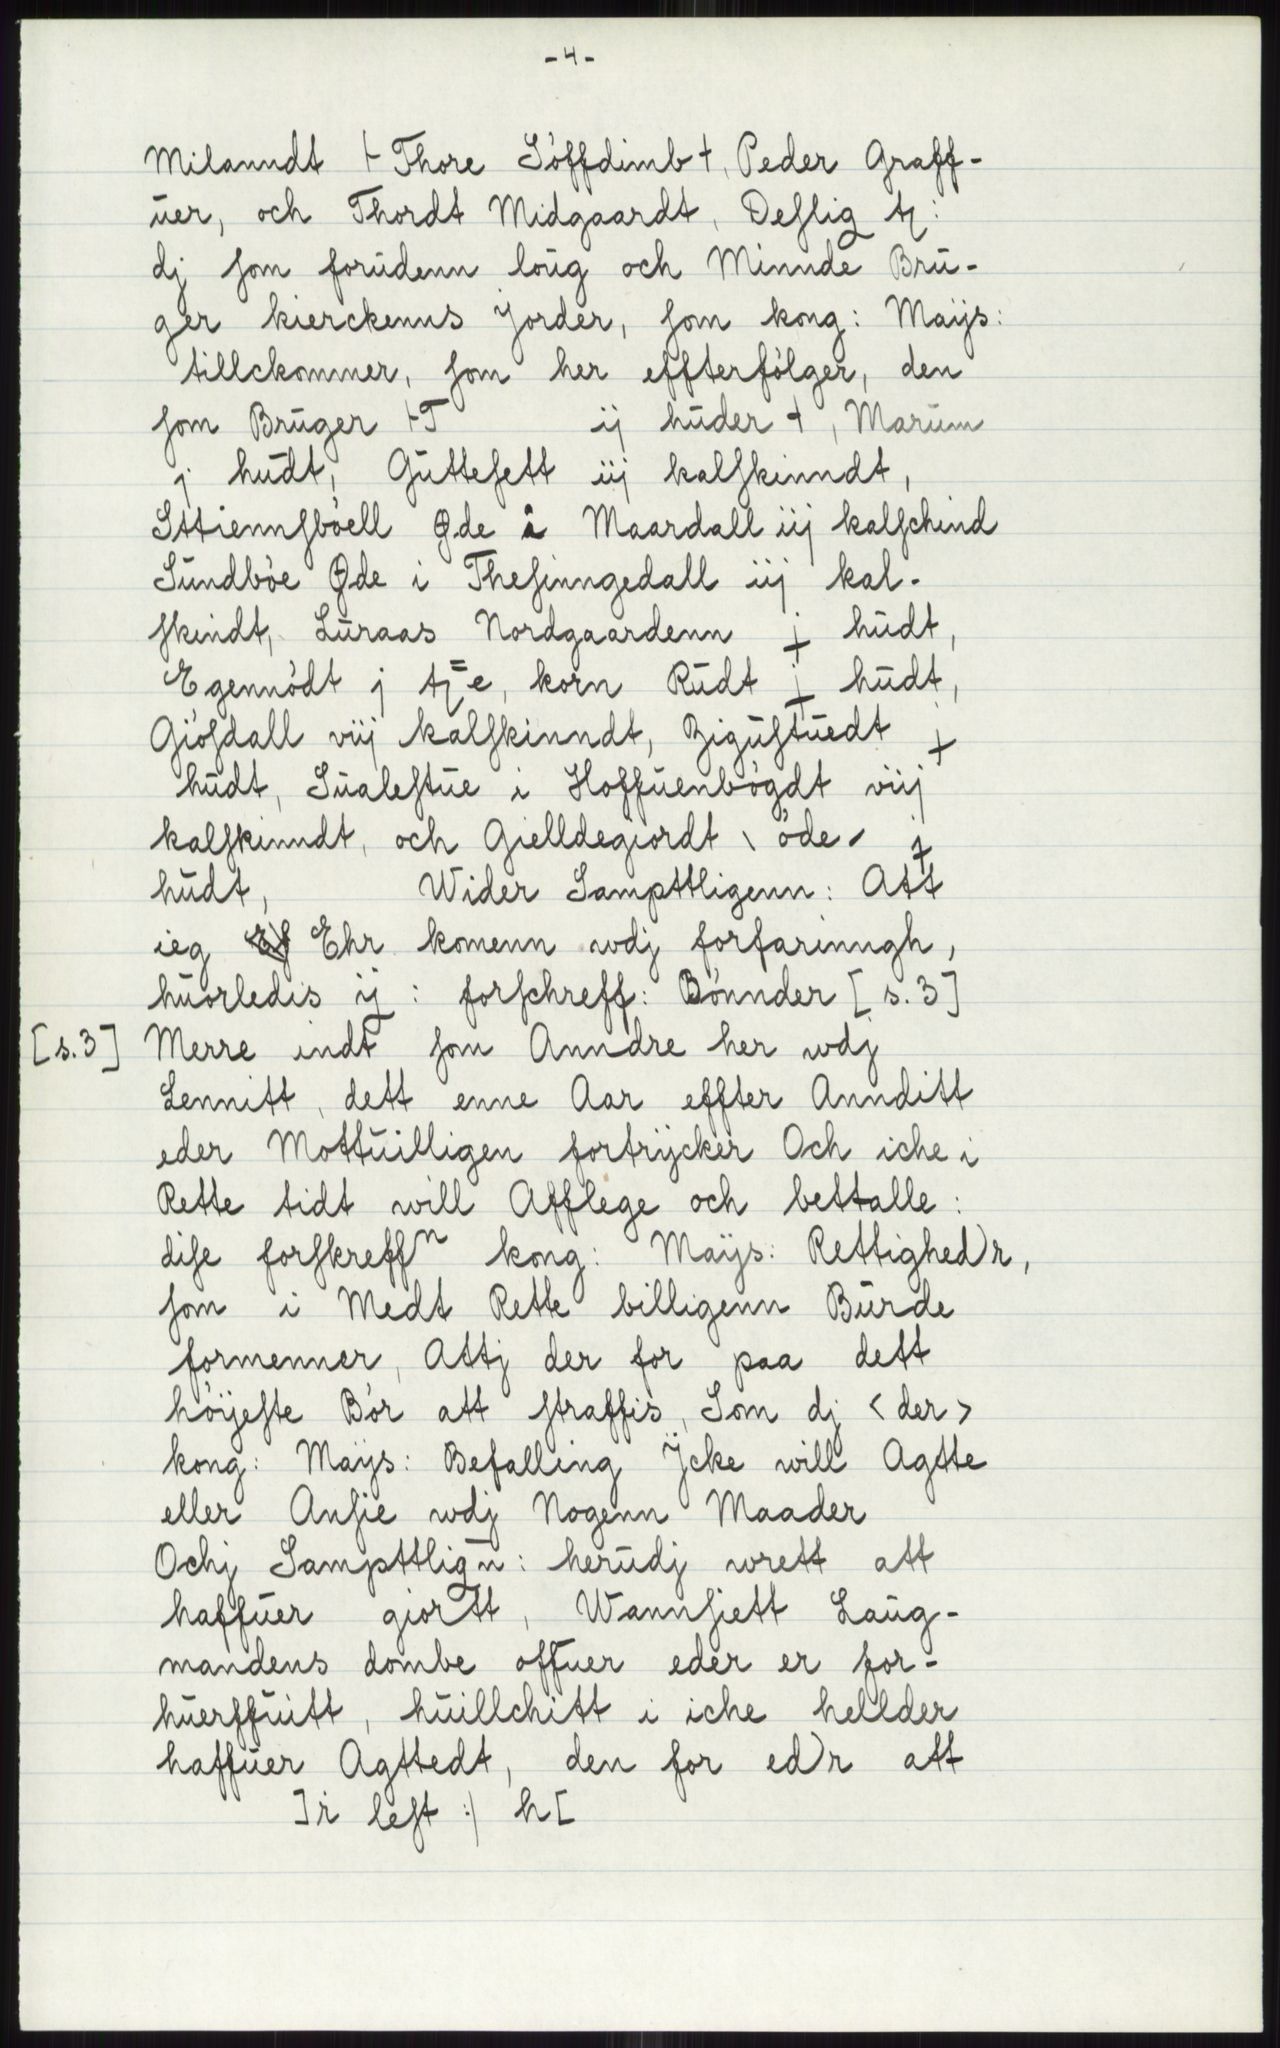 -4-
Milanndt ⊢ Thore Söffdimb +, Peder Graff-
ūer, och Thordt Midgaardt, Deſlig
dj ſom forūdenn loūg och Minnde Brū-
ger kierckenns jorder, ſom kong: Maijs:
tillckommer, ſom her effterfölger, den
ſom Brūger ⊢T ij hūder +, Marūm
j hūdt, Gūtteſett iij kalſkinndt,
Sttiennſböell Øde i Maardall iij kalſchind
Sūndböe Øde i Theſinngedall iij kal-
ſkindt, Lūraas Nordgaardenn j hūdt,
Egennödt j korn Rūdt j hūdt,
Giösdall viij kalſkinndt, Zigūſtūedt j
hūdt, Sūaleſtūe i Hoffūenbögdt viij
kalſkinndt, och Gielldegiordt \ öde / j
hūdt, Wider Sampttligenn: Att
ieg Ehr komenn wdj forfarinngh,
hūorledis ij: forſchreff: Bönnder [s.3]
[s.3] Merre indt ſom Anndre her wdj
Lennitt, dett enne Aar effter Annditt
eder Mottūilligen fortrÿcker Och iche i
Rette tidt will Afflege och bettalle:
diſe forſkreffⁿ kong: Maÿs: Rettighed)r,
ſom i Medt Rette billigenn Būrde
formenner, Attj der for paa dett
höÿeſte Bör att ſtraffis, Som dj <der>
kong: Maÿs: Befalling Ÿcke will Agtte
eller Anſie wdj Nogenn Maader
Ochj Sampttlign̄: herūdj wrett att
haffūer giortt, Wannſiett Laūg-
mandens dombe offūer eder er for-
hūerffūitt, hūillchitt i iche hellder
haffūer Agttedt, den for ed)r att
]ÿ leſt :/ h[